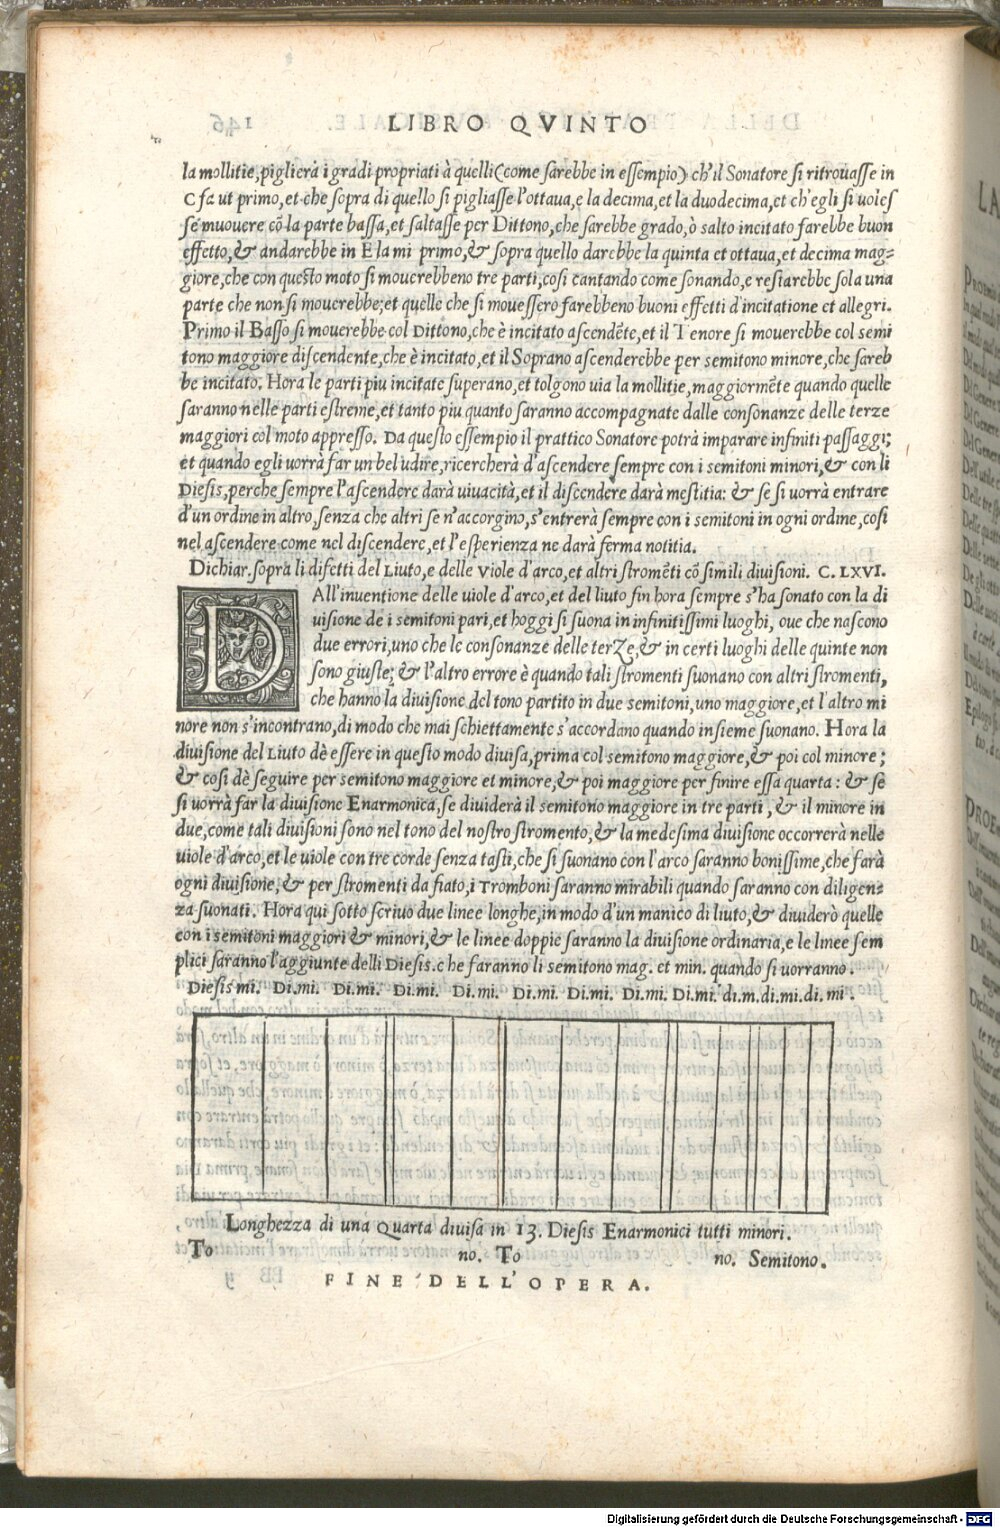 LIBRO QVINTO
la mollitie, piglierà i gradi propriati à quelli (come sarebbe in essempio) ch'il Sonatore si ritrouasse in
C fa ut primo, et che sopra di quello si pigliasse l'ottaua, e la decima, et la duodecima, et ch'egli si uoles
se muouere cõ la parte bassa, et saltasse per Dittono, che sarebbe grado, ò salto incitato farebbe buon
effetto, & andarebbe in E la mi primo, & sopra quello darebbe la quinta et ottaua, et decima mag=
giore, che con questo moto si mouerebbeno tre parti, cosi cantando come sonando, e restarebbe sola una
parte che non si mouerebbe; et quelle che si mouessero farebbeno buoni effetti d'incitatione et allegri.
Primo il Basso si mouerebbe col Dittono, che è incitato ascendẽte, et il Tenore si mouerebbe col semi
tono maggiore discendente, che è incitato, et il Soprano ascenderebbe per semitono minore, che sareb
be incitato. Hora le parti piu incitate superano, et tolgono uia la mollitie, maggiormẽte quando quelle
saranno nelle parti estreme, et tanto piu quanto saranno accompagnate dalle consonanze delle terze
maggiori col moto appresso. Da questo essempio il prattico Sonatore potrà imparare infiniti passaggi;
et quando egli uorrà far un bel udire, ricercherà d'ascendere sempre con i semitoni minori, & con li
Diesis, perche sempre l'ascendere darà uiuacità, et il discendere darà mestitia: & se si uorrà entrare
d'un ordine in altro, senza che altri se n'accorgino, s'entrerà sempre con i semitoni in ogni ordine, cosi
nel ascendere come nel discendere, et l'esperienza ne darà ferma notitia.
Dichiar. sopra li difetti del Liuto, e delle Viole d'arco, et altri stromẽti cõ simili diuisioni. C. LXVI.
DAll'inuentione delle uiole d'arco, et del liuto fin hora sempre s'ha sonato con la di
uisione de i semitoni pari, et hoggi si suona in infinitissimi luoghi, oue che nascono
due errori, uno che le consonanze delle terZe, & in certi luoghi delle quinte non
sono giuste; & l'altro errore è quando tali stromenti suonano con altri stromenti,
che hanno la diuisione del tono partito in due semitoni, uno maggiore, et l'altro mi
nore non s'incontrano, di modo che mai schiettamente s'accordano quando insieme suonano. Hora la
diuisione del Liuto dè essere in questo modo diuisa, prima col semitono maggiore, & poi col minore;
& cosi dè seguire per semitono maggiore et minore, & poi maggiore per finire essa quarta: & se
si uorrà far la diuisione Enarmonica, se diuiderà il semitono maggiore in tre parti, & il minore in
due, come tali diuisioni sono nel tono del nostro stromento, & la medesima diuisione occorrerà nelle
uiole d'arco, et le uiole con tre corde senza tasti, che si suonano con l'arco saranno bonissime, che farà
ogni diuisione, & per stromenti da fiato, i Tromboni saranno mirabili quando saranno con diligen=
za suonati. Hora qui sotto scriuo due linee longhe, in modo d'un manico di liuto, & diuiderò quelle
con i semitoni maggiori & minori, & le linee doppie saranno la diuisione ordinaria, e le linee sem
plici saranno l'aggiunte delli Diesis. che faranno li semitono mag. et min. quando si uorranno.
Diesis mi. Di. mi. Di. mi. Di. mi. Di. mi. Di. mi. Di. mi. Di. mi. Di. mi. di. m. di. mi. di. mi.
Longhezza di una Quarta diuisa in 13. Diesis Enarmonici tutti minori.
To no. To no. Semitono.
FINE DELL'OPERA.
Digitalisierung gefördert durch die Deutsche Forschungsgemeinschaft - DFG